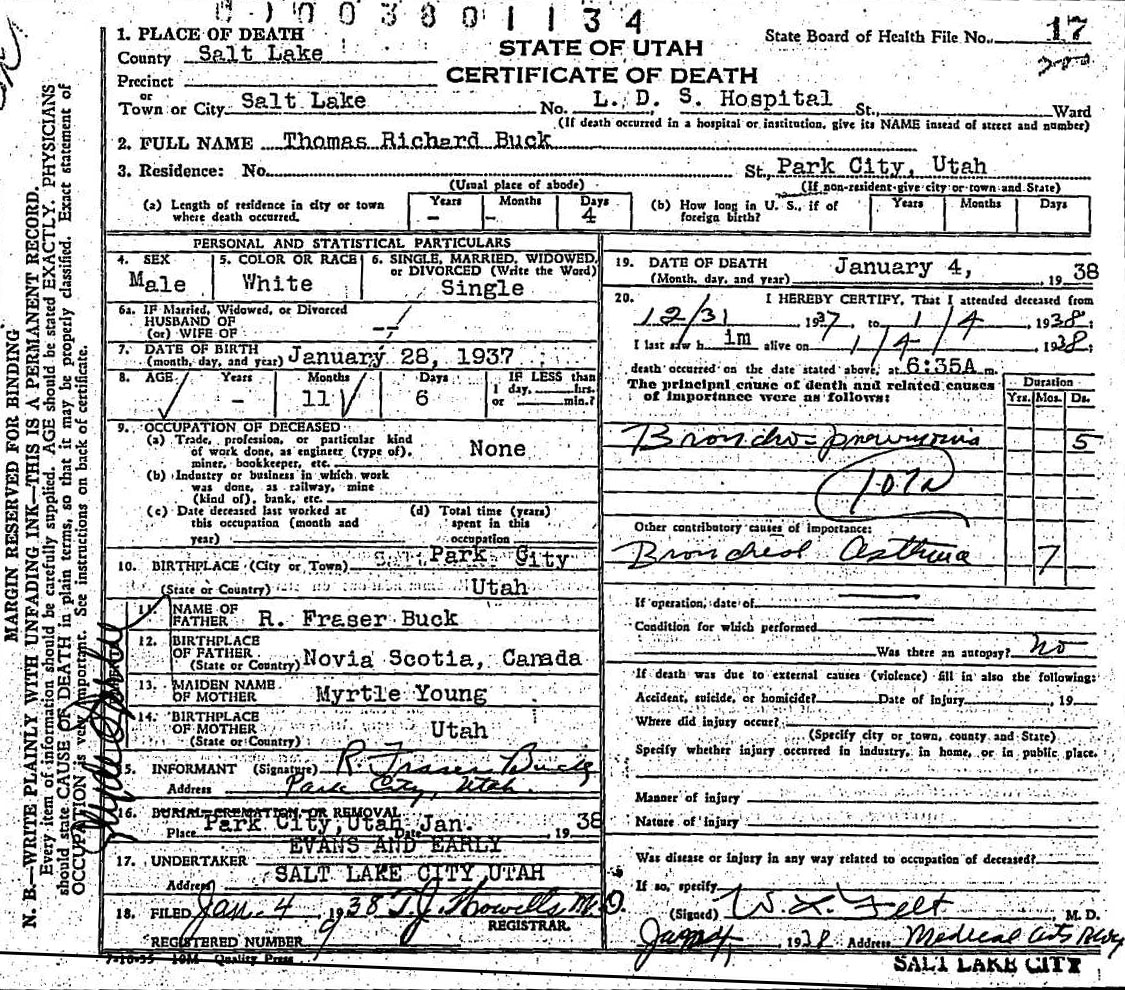 003801134
1. PLACE OF DEATH
County Salt Lake
Precinct
or
Town or City Salt Lake
STATE OF UTAH
CERTIFICATE OF DEATH
State Board of Health File No. 17
No. L. D. S. Hospital St., Ward
(If death occurred in a hospital or institution, give its NAME instead of street and number)
2. FULL NAME Thomas Richard Buck
3. Residence: No. St., Park City, Utah
(Usual place of abode) (If non-resident give city or town and State)
(a) Length of residence in city or town where death occurred. Years - Months - Days 4
(b) How long in U. S., if of foreign birth? Years Months Days
PERSONAL AND STATISTICAL PARTICULARS
4. SEX Male
5. COLOR OR RACE White
6. SINGLE, MARRIED, WIDOWED, or DIVORCED (Write the Word) Single
6a. IF Married, Widowed, or Divorced
HUSBAND OF
(or) WIFE OF --
7. DATE OF BIRTH
(month, day, and year) January 28, 1937
8. AGE Years - Months 11 Days 6 IF LESS than 1 day, hrs. or min.?
9. OCCUPATION OF DECEASED
(a) Trade, profession, or particular kind
of work done, as engineer (type of),
miner, bookkeeper, etc. None
(b) Industry or business in which work
was done, as railway, mine
(kind of), bank, etc.
(c) Date deceased last worked at
this occupation (month and
year)
(d) Total time (years)
spent in this
occupation
10. BIRTHPLACE (City or Town) Park City
(State or Country) Utah
11. NAME OF
FATHER R. Fraser Buck
12. BIRTHPLACE
OF FATHER
(State or Country) Novia Scotia, Canada
13. MAIDEN NAME
OF MOTHER Myrtle Young
14. BIRTHPLACE
OF MOTHER
(State or Country) Utah
15. INFORMANT (Signature) R Fraser Buck
Address Park City, Utah.
16. BURIAL-CREMATION-OR REMOVAL
Place Park City, Utah Date Jan. , 19 38
17. UNDERTAKER EVANS AND EARLY
Address SALT LAKE CITY UTAH
18. FILED Jan. 4, 1938 T. J. Howells M. D.
REGISTRAR.
REGISTERED NUMBER 9
7-10-35 10M Quality Press
19. DATE OF DEATH
(Month, day, and year) January 4, , 19 38
20. I HEREBY CERTIFY, That I attended deceased from
12/31, 1937, to 1/4, 1938;
I last saw h im alive on 1/4, 1938;
death occurred on the date stated above, at 6:35A m.
The principal cause of death and related causes
of importance were as follows:
Duration
Yrs. Mos. Ds.
Broncho-pneumonia 5
107a
Other contributory causes of importance:
Bronchial Asthma 7
If operation, date of
Condition for which performed
Was there an autopsy? no
If death was due to external causes (violence) fill in also the following:
Accident, suicide, or homicide? Date of injury , 19
Where did injury occur?
(Specify city or town, county and State)
Specify whether injury occurred in industry, in home, or in public place.
Manner of injury
Nature of injury
Was disease or injury in any way related to occupation of deceased?
If so, specify
(Signed) W. L. Felt, M. D.
Jan 4, 1938 Address Medical Arts Bldg
SALT LAKE CITY
MARGIN RESERVED FOR BINDING
N. B.—WRITE PLAINLY WITH UNFADING INK—THIS IS A PERMANENT RECORD.
Every item of information should be carefully supplied. AGE should be stated EXACTLY. PHYSICIANS
should state CAUSE OF DEATH in plain terms, so that it may be properly classified. Exact statement of
OCCUPATION is very important. See instructions on back of certificate.